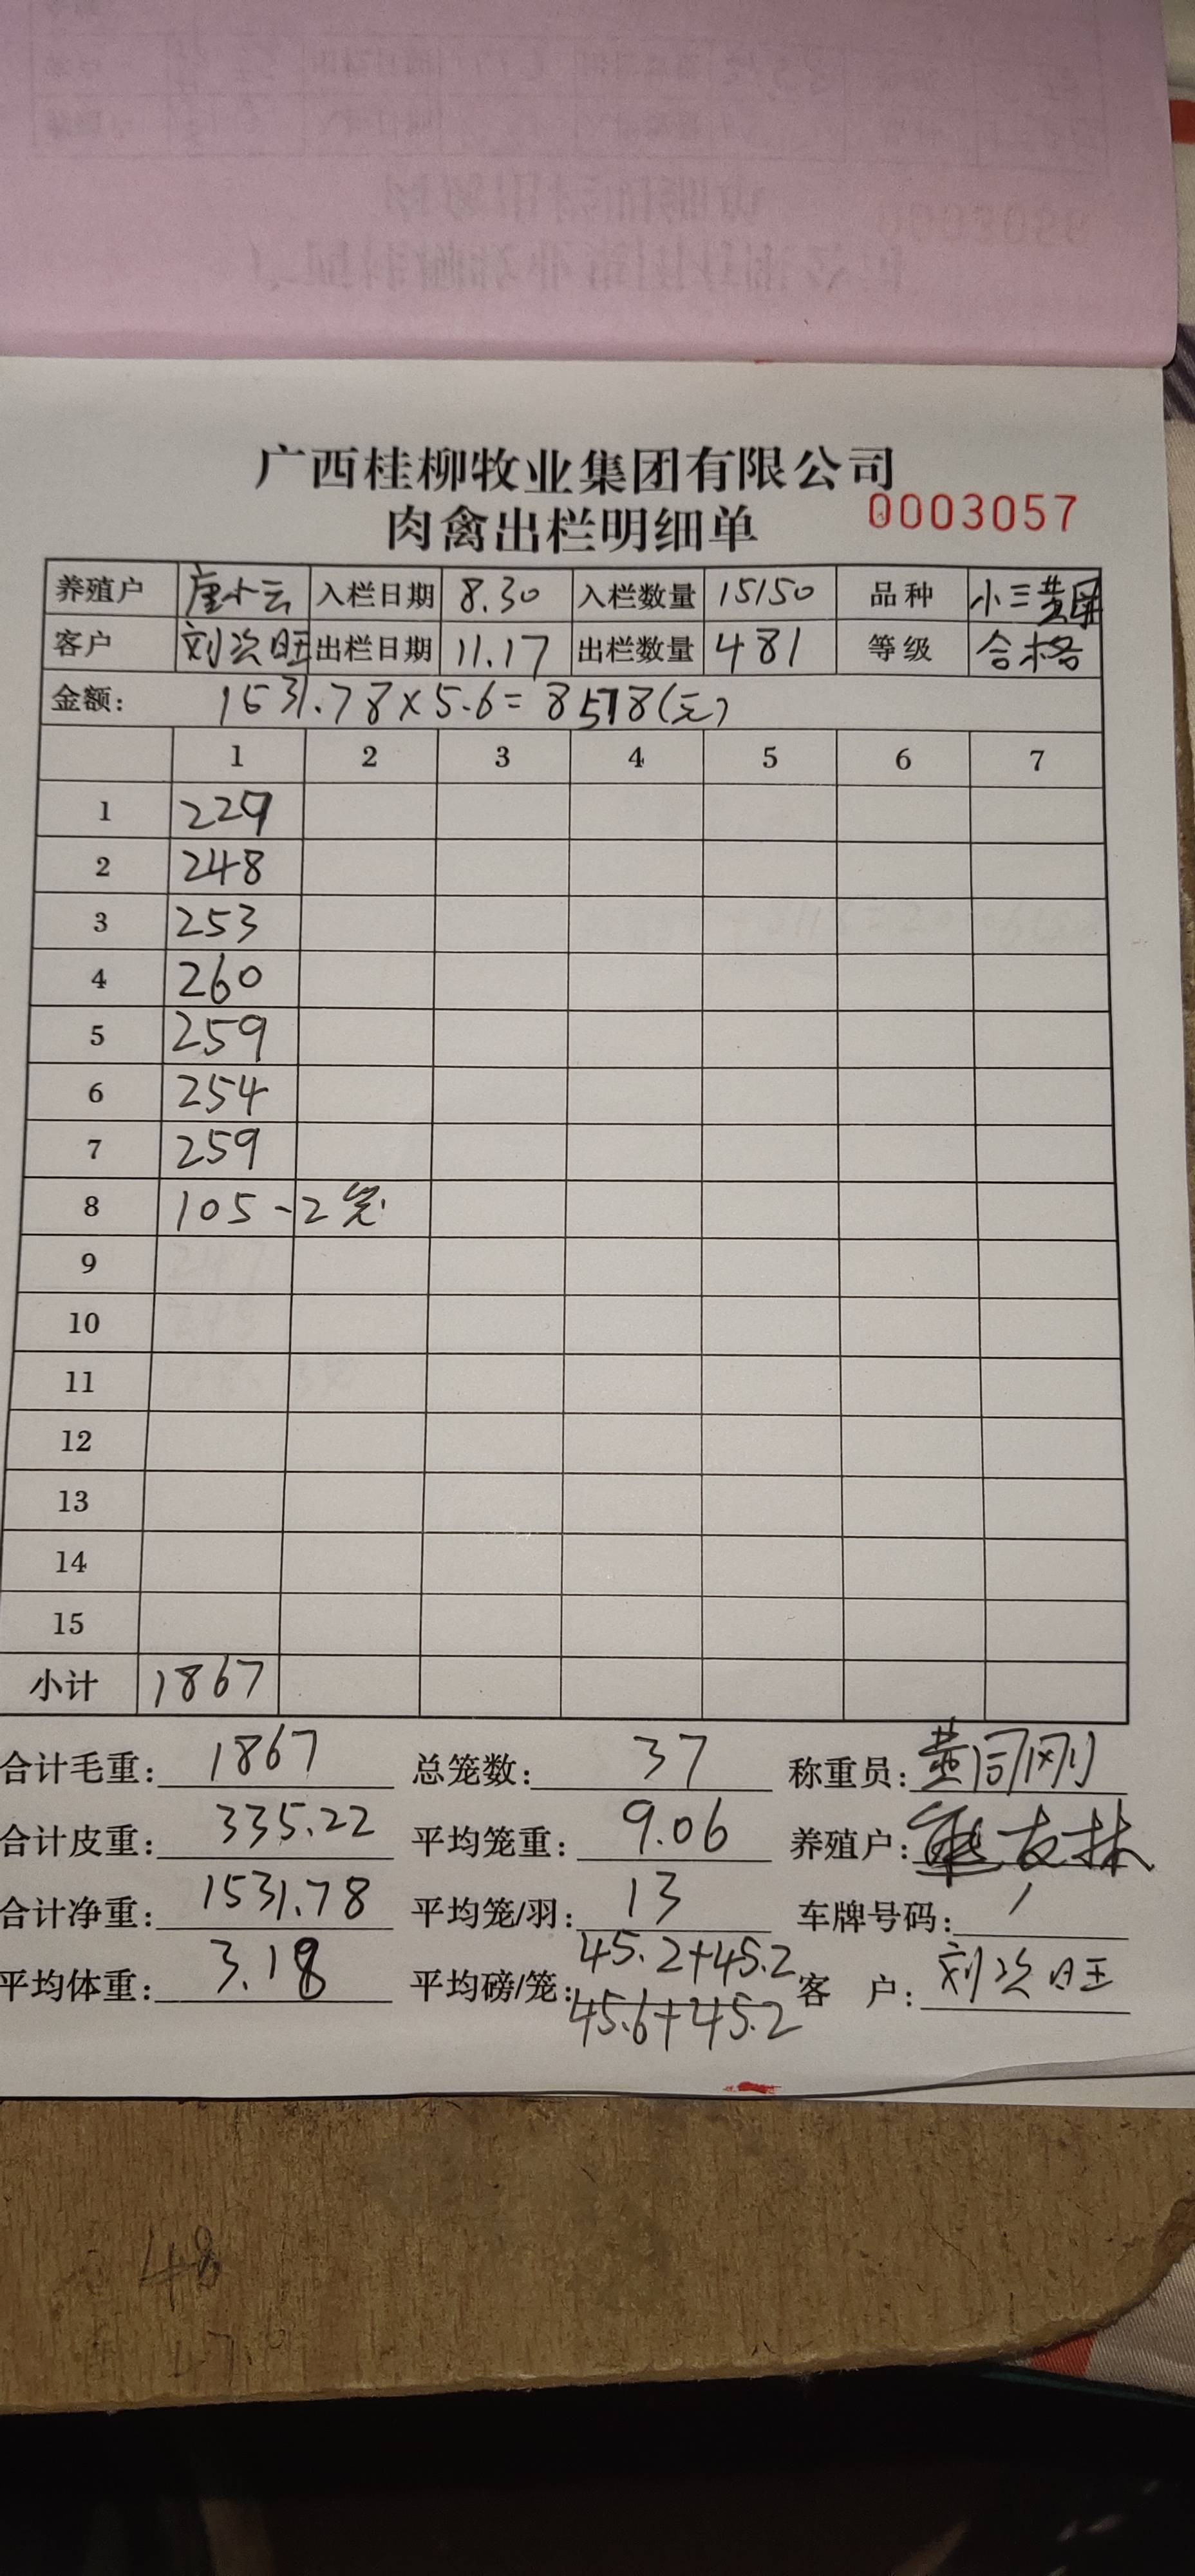 广西桂柳牧业集团有限公司
肉禽出栏明细单 0003057
养殖户 唐小云 入栏日期 8.30 入栏数量 15150 品种 小三黄
客户 刘次旺 出栏日期 11.17 出栏数量 481 等级 合格
金额: 1531.78×5.6=8578(元)
1 2 3 4 5 6 7
1 229
2 248
3 253
4 260
5 259
6 254
7 259
8 105-2笼
9
10
11
12
13
14
15
小计 1867
合计毛重: 1867 总笼数: 37 称重员: 黄同刚
合计皮重: 335.22 平均笼重: 9.06 养殖户: 友林
合计净重: 1531.78 平均笼/羽: 13 车牌号码: /
平均体重: 3.18 平均磅/笼: 45.2+45.2 客户: 刘次旺
45.6+45.2
48